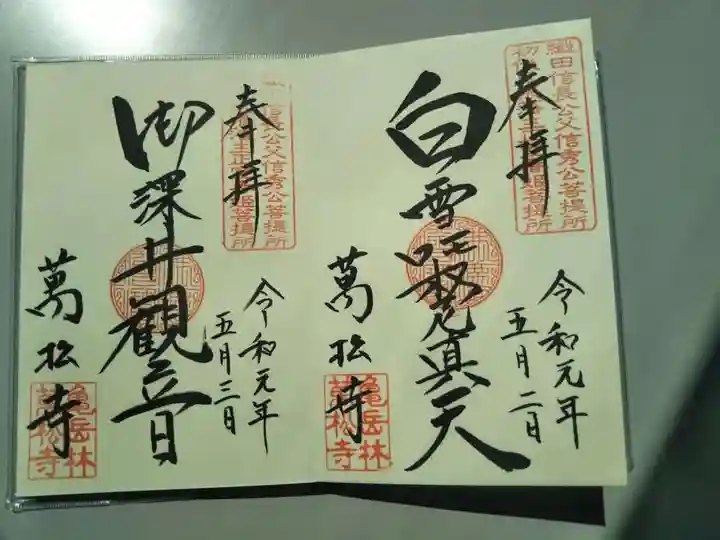 織田信長公父信秀公菩提所
奉拝
令和元年
五月二日
白雪吒枳尼真天
萬松寺
亀岳林
萬松寺
信長公父信秀公菩提所
奉拝
令和元年
五月三日
御深井観音
萬松寺
亀岳林
萬松寺